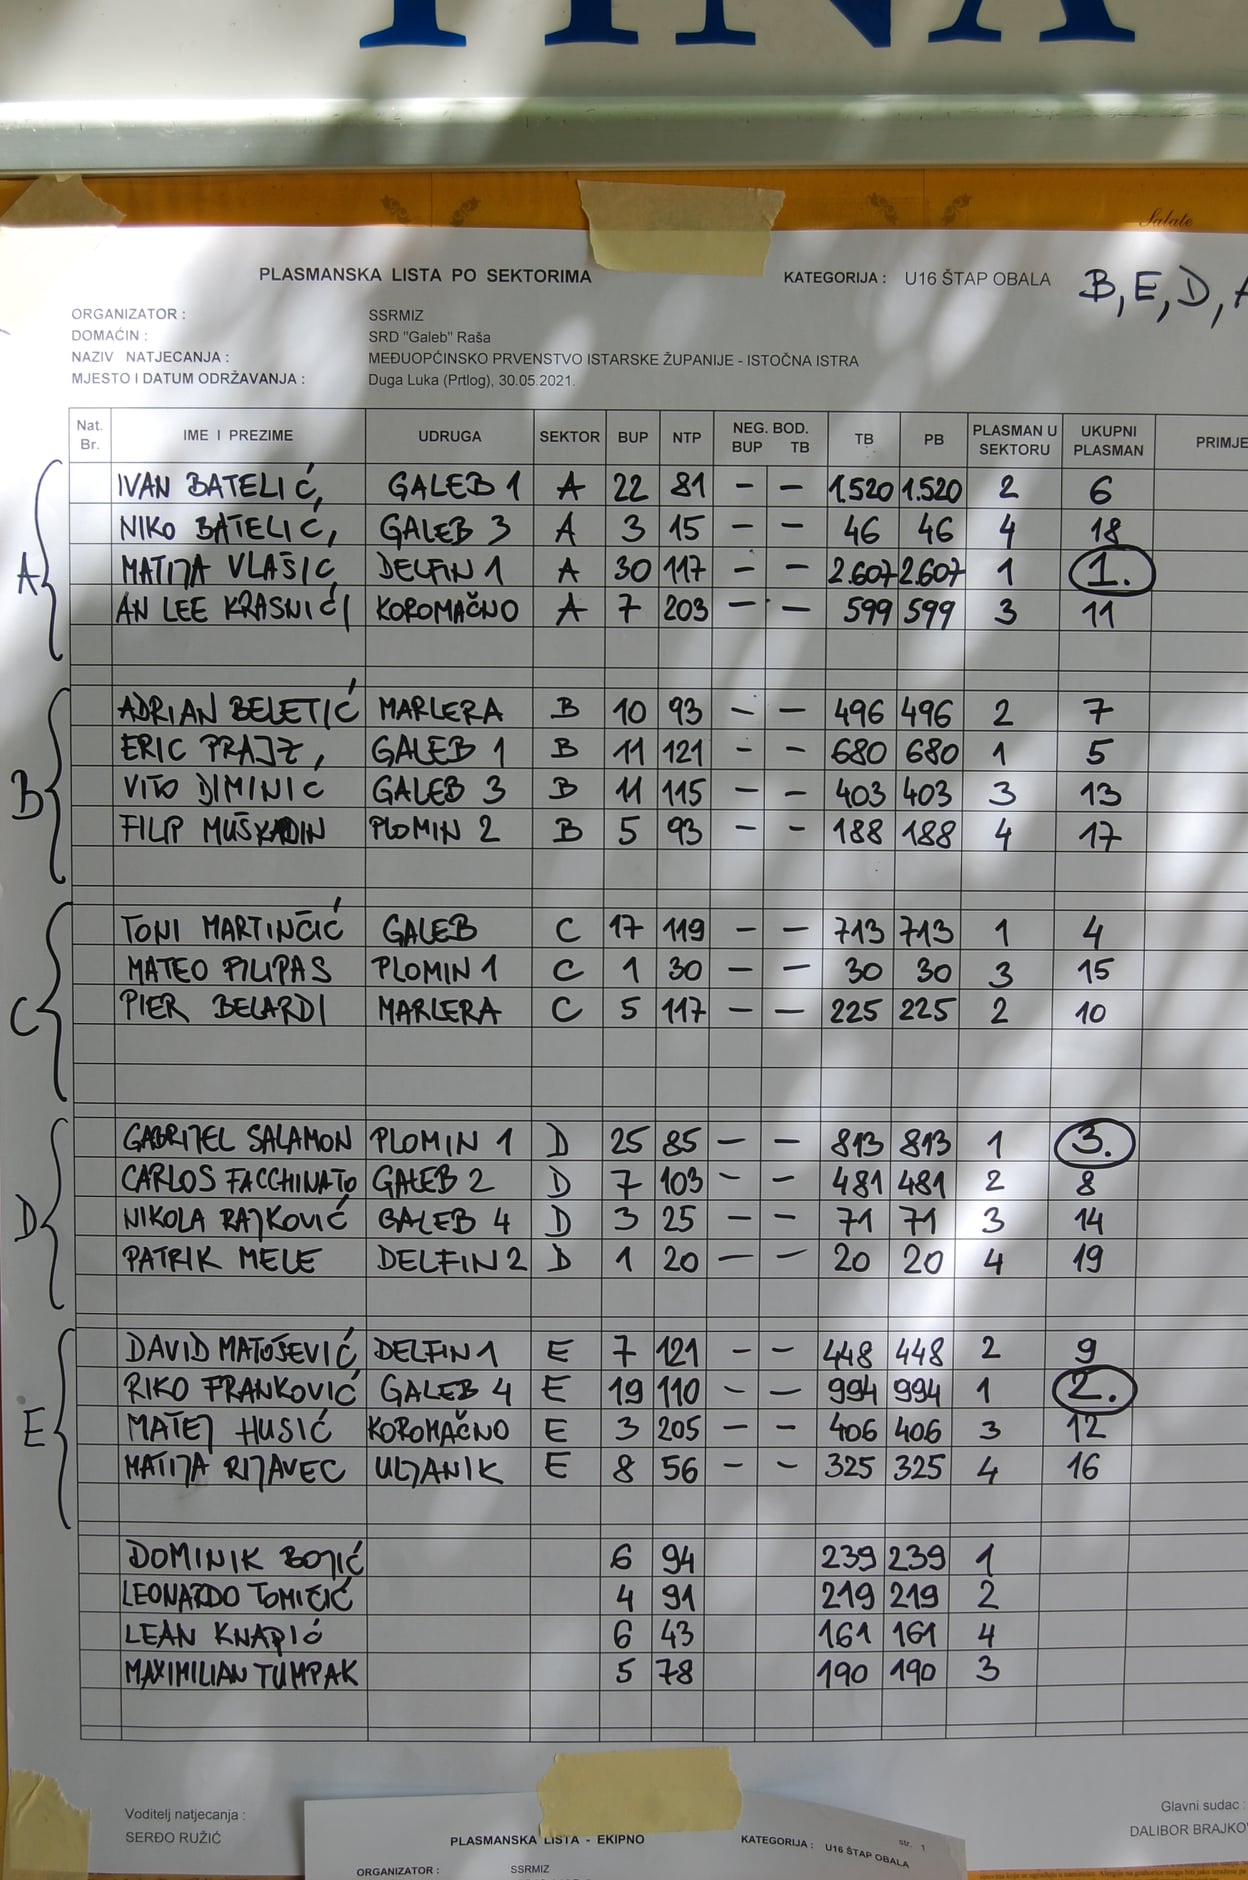 TINA
Salate
PLASMANSKA LISTA PO SEKTORIMA KATEGORIJA : U16 ŠTAP OBALA B, E, D, A
ORGANIZATOR : SSRMIZ
DOMAĆIN : SRD "Galeb" Raša
NAZIV NATJECANJA : MEĐUOPĆINSKO PRVENSTVO ISTARSKE ŽUPANIJE - ISTOČNA ISTRA
MJESTO I DATUM ODRŽAVANJA : Duga Luka (Prtlog), 30.05.2021.
Nat. Br. IME I PREZIME UDRUGA SEKTOR BUP NTP NEG. BOD. BUP TB TB PB PLASMAN U SEKTORU UKUPNI PLASMAN PRIMJE
A
IVAN BATELIĆ, GALEB 1 A 22 81 - - 1.520 1.520 2 6
NIKO BATELIĆ, GALEB 3 A 3 15 - - 46 46 4 18
MATIJA VLAŠIĆ DELFIN 1 A 30 117 - - 2.607 2.607 1 1.
AN LEE KRASNIĆI KOROMAČNO A 7 203 - - 599 599 3 11
B
ADRIAN BELETIĆ MARLERA B 10 93 - - 496 496 2 7
ERIC PRAJZ, GALEB 1 B 11 121 - - 680 680 1 5
VITO DIMINIĆ GALEB 3 B 11 115 - - 403 403 3 13
FILIP MUŠKADIN PLOMIN 2 B 5 93 - - 188 188 4 17
C
TONI MARTINČIĆ GALEB C 17 119 - - 713 713 1 4
MATEO FILIPAS PLOMIN 1 C 1 30 - - 30 30 3 15
PIER BELARDI MARLERA C 5 117 - - 225 225 2 10
D
GABRIJEL SALAMON PLOMIN 1 D 25 85 - - 813 813 1 3.
CARLOS FACCHINATO GALEB 2 D 7 103 - - 481 481 2 8
NIKOLA RAJKOVIĆ GALEB 4 D 3 25 - - 71 71 3 14
PATRIK MELE DELFIN 2 D 1 20 - - 20 20 4 19
E
DAVID MATOŠEVIĆ DELFIN 1 E 7 121 - - 448 448 2 9
RIKO FRANKOVIĆ GALEB 4 E 19 110 - - 994 994 1 2.
MATEJ HUSIĆ KOROMAČNO E 3 205 - - 406 406 3 12
MATIJA RIJAVEC ULJANIK E 8 56 - - 325 325 4 16
DOMINIK BOJIĆ 6 94 239 239 1
LEONARDO TOMIČIĆ 4 91 219 219 2
LEAN KNAPIĆ 6 43 161 161 4
MAXIMILIAN TUMPAK 5 78 190 190 3
Voditelj natjecanja : Glavni sudac :
SERĐO RUŽIĆ DALIBOR BRAJKOV
PLASMANSKA LISTA - EKIPNO KATEGORIJA : U16 ŠTAP OBALA str. 1
ORGANIZATOR : SSRMIZ